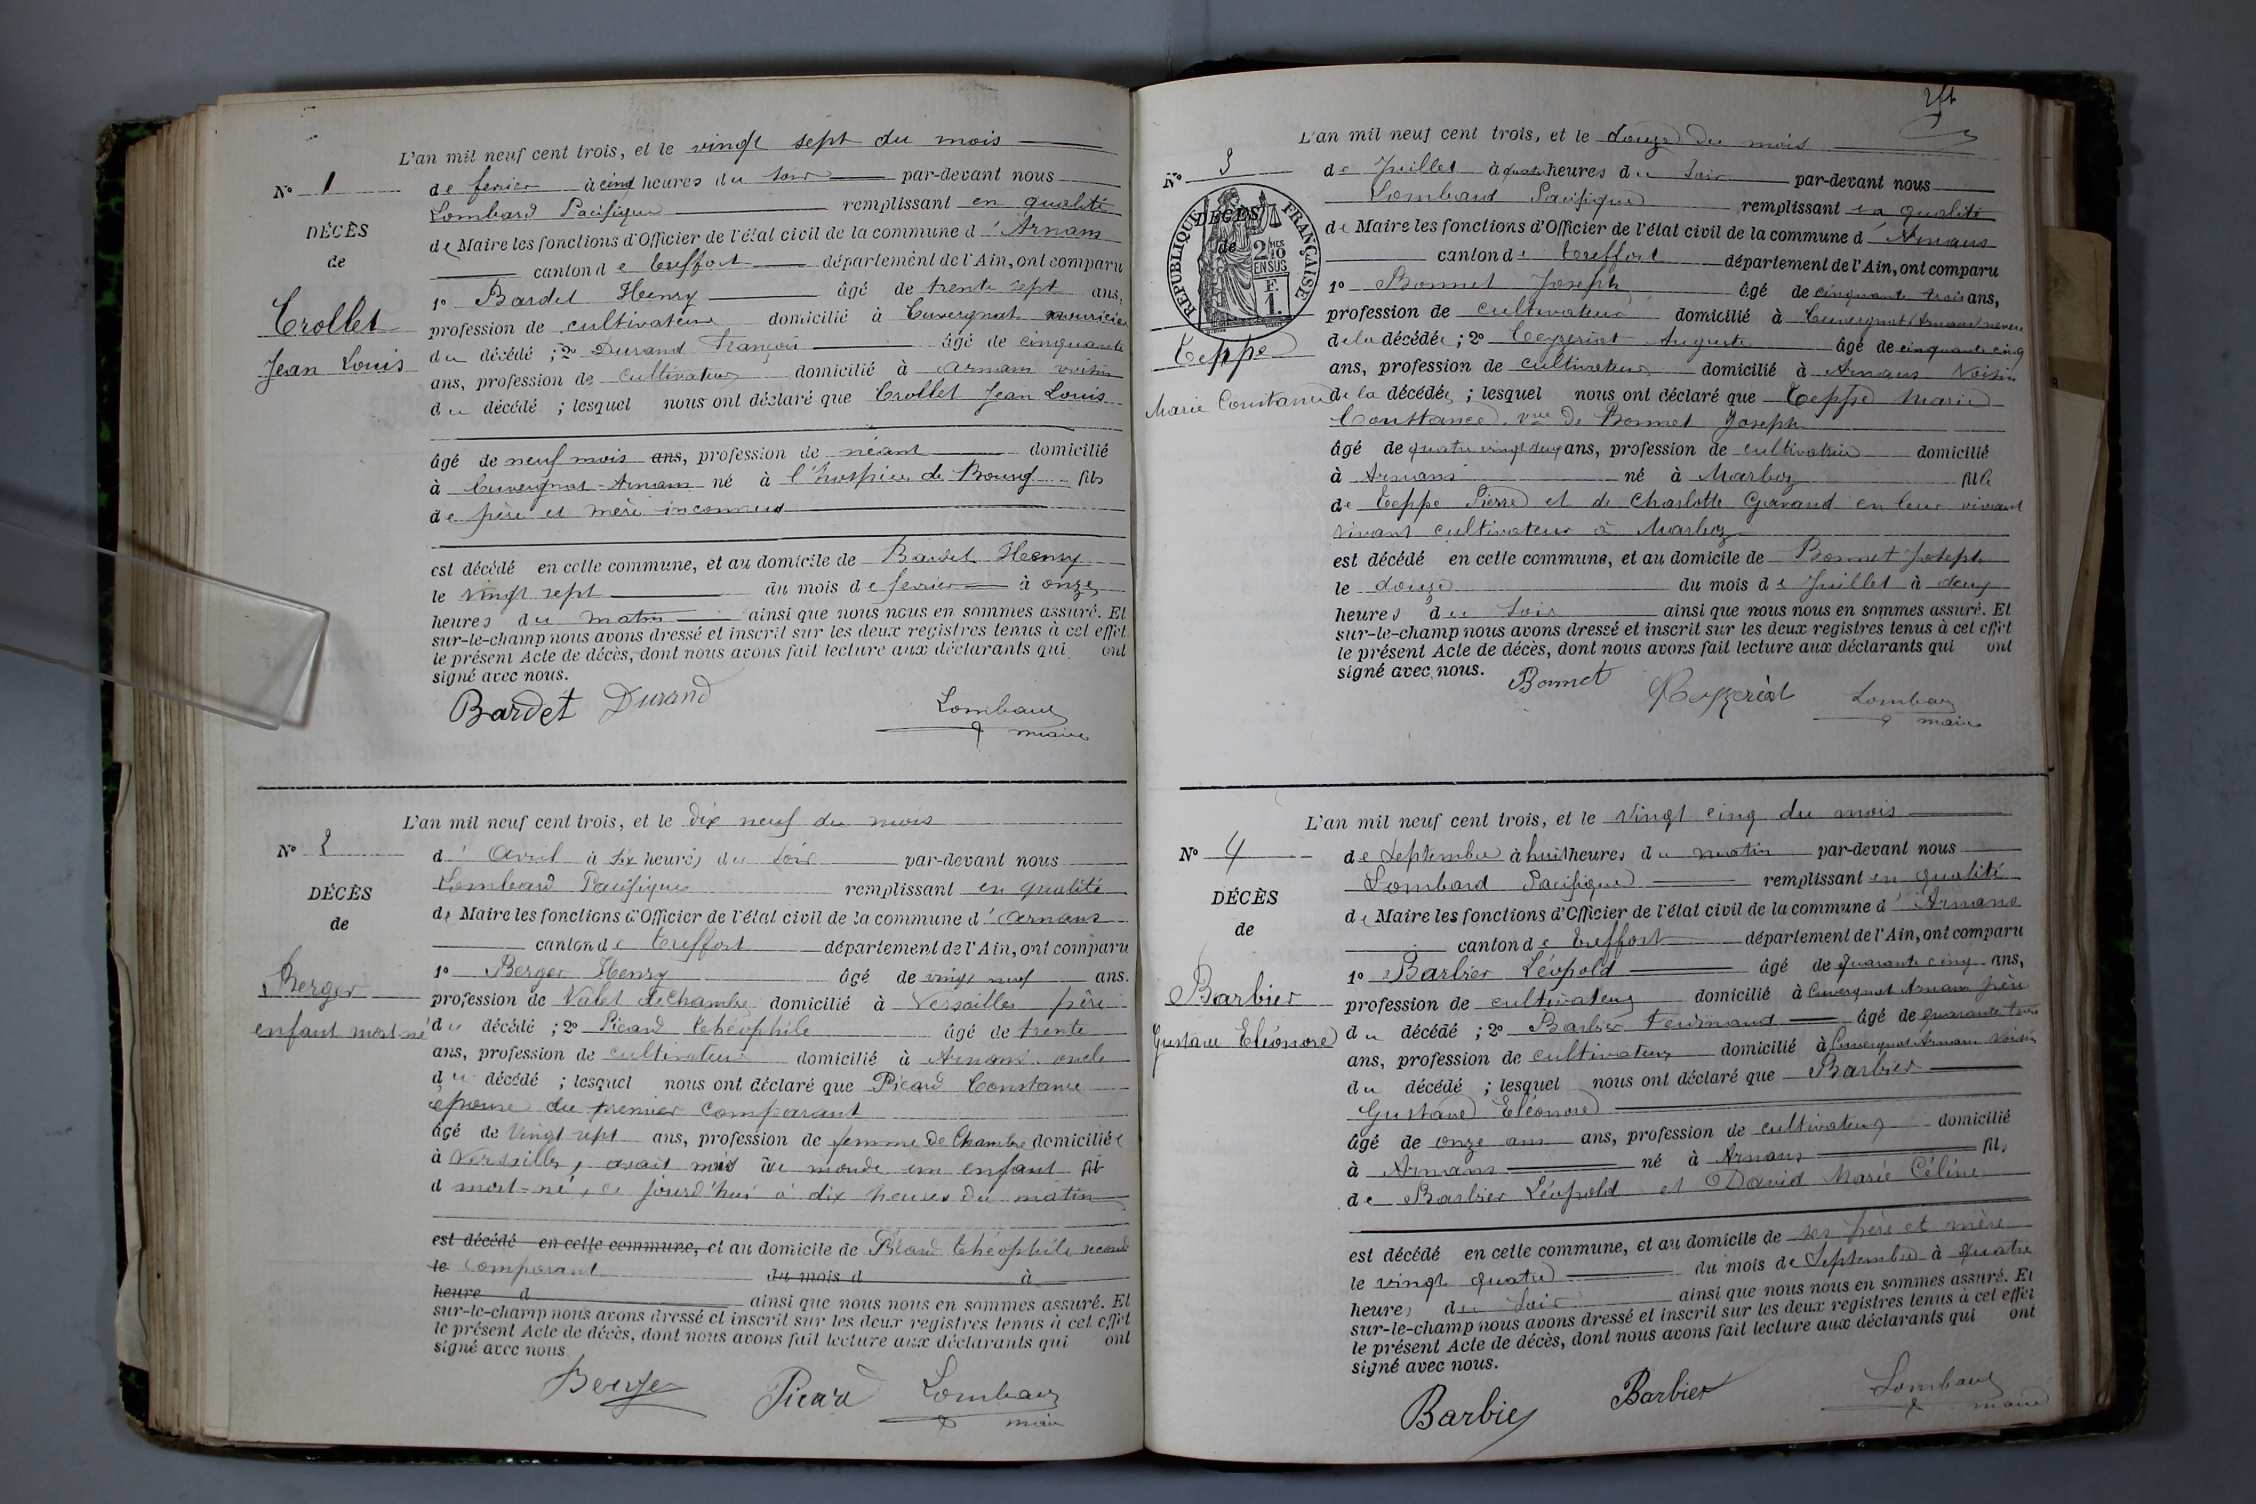 L'an mil neuf cent trois, et le vingt sept du mois
N° 1
de fevrier à cinq heures du soir par-devant nous
Lombard Pacifique remplissant en qualité
DÉCÈS
de Maire les fonctions d'Officier de l'état civil de la commune d'Arnans
de
canton de Treffort département de l'Ain, ont comparu
1° Bardet Henry âgé de trente sept ans,
Trollet
profession de cultivateur domicilié à Cuvergnat nourricier
du décédé ; 2° Durand François âgé de cinquante
Jean Louis
ans, profession de cultivateur domicilié à Arnans voisin
du décédé ; lesquel nous ont déclaré que Trollet Jean Louis
âgé de neuf mois ans, profession de néant domicilié
à Cuvergnat-Arnans né à l'hospice de Bourg fils
de père et mère inconnus
est décédé en cette commune, et au domicile de Bardet Henry
le vingt sept du mois de fevrier à onze
heures du matin ainsi que nous nous en sommes assuré. Et
sur-le-champ nous avons dressé et inscrit sur les deux registres tenus à cet effet
le présent Acte de décès, dont nous avons fait lecture aux déclarants qui ont
signé avec nous.
Bardet Durand Lombard
maire
L'an mil neuf cent trois, et le dix neuf du mois
N° 2
d'Avril à six heures du soir par-devant nous
Lombard Pacifique remplissant en qualité
DÉCÈS
de Maire les fonctions d'Officier de l'état civil de la commune d'Arnans
de
canton de Treffort département de l'Ain, ont comparu
1° Berger Henry âgé de vingt neuf ans.
Berger
profession de Valet de chambre domicilié à Versailles père
enfant mort né
du décédé ; 2° Picard Théophile âgé de trente
ans, profession de cultivateur domicilié à Arnans oncle
du décédé ; lesquel nous ont déclaré que Picard Constance
epouse du premier comparant
âgé de Vingt sept ans, profession de femme de Chambre domiciliée
à Versailles, avait mis au monde un enfant fils
d mort-né, ce jourd'hui à dix heures du matin
est décédé en cette commune, et au domicile de Picard Théophile second
le comparant du mois d à
heure d ainsi que nous nous en sommes assuré. Et
sur-le-champ nous avons dressé et inscrit sur les deux registres tenus à cet effet
le présent Acte de décès, dont nous avons fait lecture aux déclarants qui ont
signé avec nous
Berger Picard Lombard
maire
L'an mil neuf cent trois, et le douze du mois
N° 3
de Juillet à quatre heures du soir par-devant nous
Lombard Pacifique remplissant en qualité
DÉCÈS
de
RÉPUBLIQUE FRANÇAISE
2 10MES
EN SUS
F.
1.
de Maire les fonctions d'Officier de l'état civil de la commune d'Arnans
canton de Treffort département de l'Ain, ont comparu
1° Bonnet Joseph âgé de cinquante trois ans,
profession de cultivateur domicilié à Cuvergnat (Arnans) neveu
Teppe
de la décédée ; 2° Ceyzeriat Auguste âgé de cinquante cinq
ans, profession de cultivateur domicilié à Arnans Voisin
Marie Constance
de la décédée ; lesquel nous ont déclaré que Teppe Marie
Constance Vve De Bonnet Joseph
âgé de quatre vingt deux ans, profession de cultivatrice domicilié
à Arnans né à Marboz fille
de Teppe Pierre et de Charlotte Gavand en leur vivant
vivant cultivateur à Marboz
est décédé en cette commune, et au domicile de Bonnet Joseph
le douze du mois de Juillet à deux
heures du soir ainsi que nous nous en sommes assuré. Et
sur-le-champ nous avons dressé et inscrit sur les deux registres tenus à cet effet
le présent Acte de décès, dont nous avons fait lecture aux déclarants qui ont
signé avec nous.
Bonnet Ceyzeriat Lombard
maire
L'an mil neuf cent trois, et le vingt cinq du mois
N° 4
de Septembre à huit heures du matin par-devant nous
Lombard Pacifique remplissant en qualité
DÉCÈS
de Maire les fonctions d'Officier de l'état civil de la commune d'Arnans
de
canton de Treffort département de l'Ain, ont comparu
1° Barbier Léopold âgé de quarante cinq ans,
Barbier
profession de cultivateur domicilié à Cuvergnat Arnans père
Gustave Eléonore
du décédé ; 2° Barbier Ferdinand âgé de quarante trois
ans, profession de cultivateur domicilié à Cuvergnat Arnans voisin
du décédé ; lesquel nous ont déclaré que Barbier
Gustave Eléonore
âgé de onze ans ans, profession de cultivateur domicilié
à Arnans né à Arnans fils
de Barbier Léopold et David Marie Céline
est décédé en cette commune, et au domicile de ses père et mère
le vingt quatre du mois de Septembre à quatre
heures du soir ainsi que nous nous en sommes assuré. Et
sur-le-champ nous avons dressé et inscrit sur les deux registres tenus à cet effet
le présent Acte de décès, dont nous avons fait lecture aux déclarants qui ont
signé avec nous.
Barbier Barbier Lombard
maire